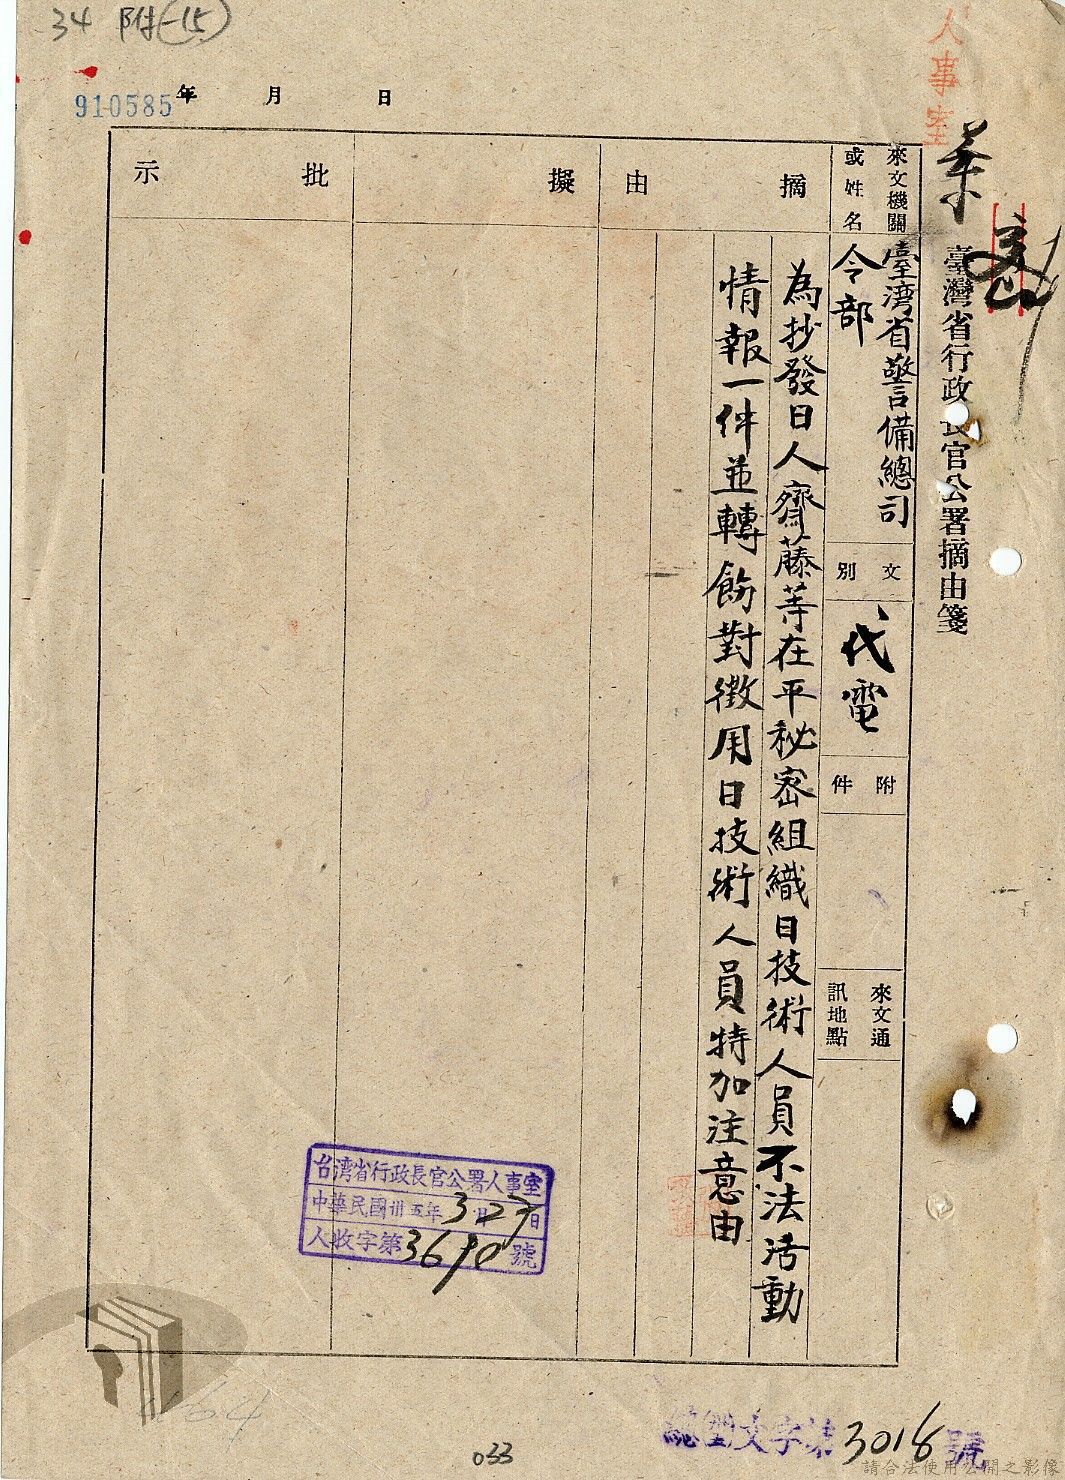 34 附一15
人事室
910585
年 月 日
臺灣省行政長官公署摘由箋
來文機關
或姓名
臺湾省警備總司
令部
文別
代電
附件
來文通
訊地點
摘由
為抄發日人齊藤等在平秘密組織日技術人員不法活動
情報一件並轉飭對徵用日技術人員特加注意由
擬
批示
台湾省行政長官公署人事室
中華民國卅五年3月27日
人收字第3690號
文字第3018號
033
164
請合法使用公開之影像